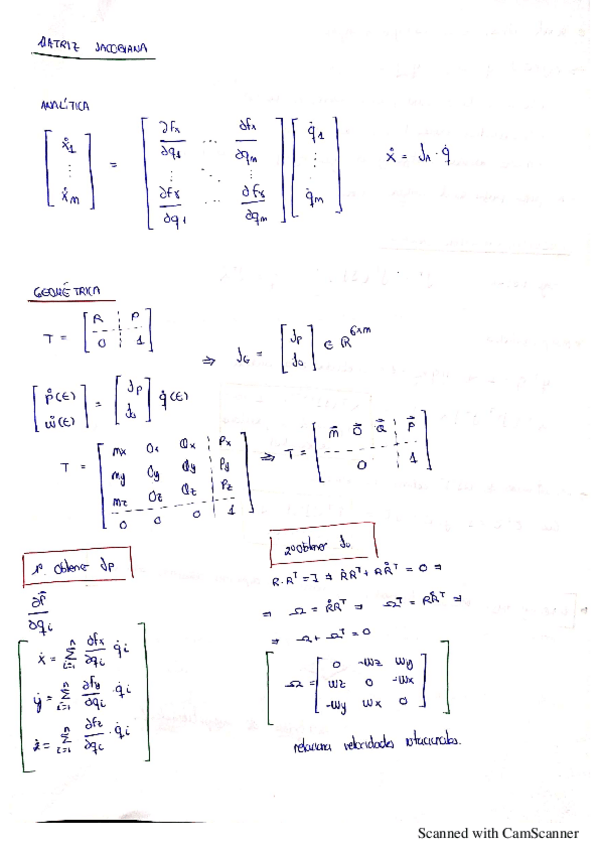 MATRIZ JACOBIANA
ANALÍTICA
[ẋ1 ⋮ ẋm] = [∂fx/∂q1 ... ∂fx/∂qm ⋮ ⋱ ⋮ ∂fγ/∂q1 ... ∂fγ/∂qm] [q̇1 ⋮ q̇m]   ẋ = JA · q̇
GEOMÉTRICA
T = [R P; 0 1] ⇒ JG = [Jp; Jo] ∈ R^6×m
[ṗ(t); ẇ(t)] = [Jp; Jo] q̇(t)
T = [mx Ox Qx Px; my Oy Qy Py; mz Oz Qz Pz; 0 0 0 1] ⇒ T = [m⃗ O⃗ Q⃗ P⃗; 0 1]
1º Obtener Jp
∂f⃗/∂qi
ẋ = Σ(i=1, n) ∂fx/∂qi q̇i
ẏ = Σ(i=1, n) ∂fy/∂qi · q̇i
ż = Σ(i=1, n) ∂fz/∂qi · q̇i
2º Obtener Jo
R·R^T = I ⇒ ṘR^T + RṘ^T = 0 ⇒
⇒ Ω = ṘR^T ⇒ Ω^T = RṘ^T ⇒
⇒ Ω + Ω^T = 0
Ω = [0 -wz wy; wz 0 -wx; -wy wx 0]
relaciona velocidades rotacionales.
Scanned with CamScanner